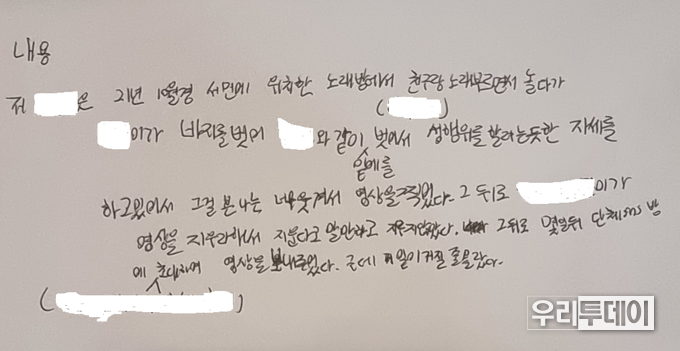 내용
저 은 21년 10월경 서면에 위치한 노래방에서 친구랑 노래부르면서 놀다가
( )
이가 바지를 벗어 와 같이 벗어서 성행위를 할라는듯한 자세를
앞에를
하고있어서 그걸 본 나는 너무웃겨서 영상을 찍었다. 그 뒤로 이가
영상을 지우라해서 지웠다고 말만하고 지우지않았다. 그뒤로 몇일뒤 단체sns 방
에 초대하여 영상을 보내주었다. 근데 일이커질 줄 몰랐다.
( )
우리투데이